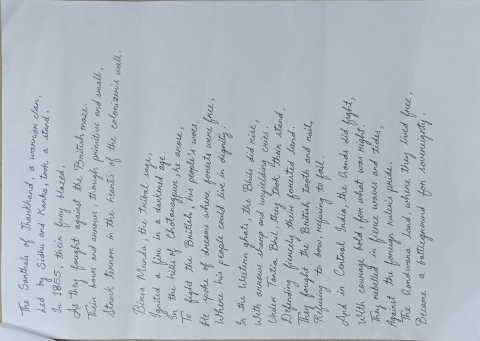 The Santhals of Jharkhand, a warrior clan,
Led by Sidhu and Kanhu, took a stand.
In 1855, their fury blazed,
As they fought against the British maze.
Their bows and arrows, though primitive and small,
Struck terror in the hearts of the colonizer's wall.
Birsa Munda, the tribal sage,
Ignited a fire in a darkened age.
In the hills of Chotanagpur, he arose,
To fight the British, his people's woes.
He spoke of dreams where forests were free,
Where his people could live in dignity.
In the Western ghats, the Bhils did rise,
With arrows sharp and unyielding cries,
Under Tantia Bhil, they took their stand,
Defending fiercely their forested land.
They fought the British, tooth and nail,
Refusing to bow, refusing to fail.
And in Central India, the Gonds did fight,
With courage bold, for what was right.
They rebelled in fierce waves and tides,
Against the foreign ruler's pride.
The Gondwana land, where they lived free,
Became a battleground for sovereignty.